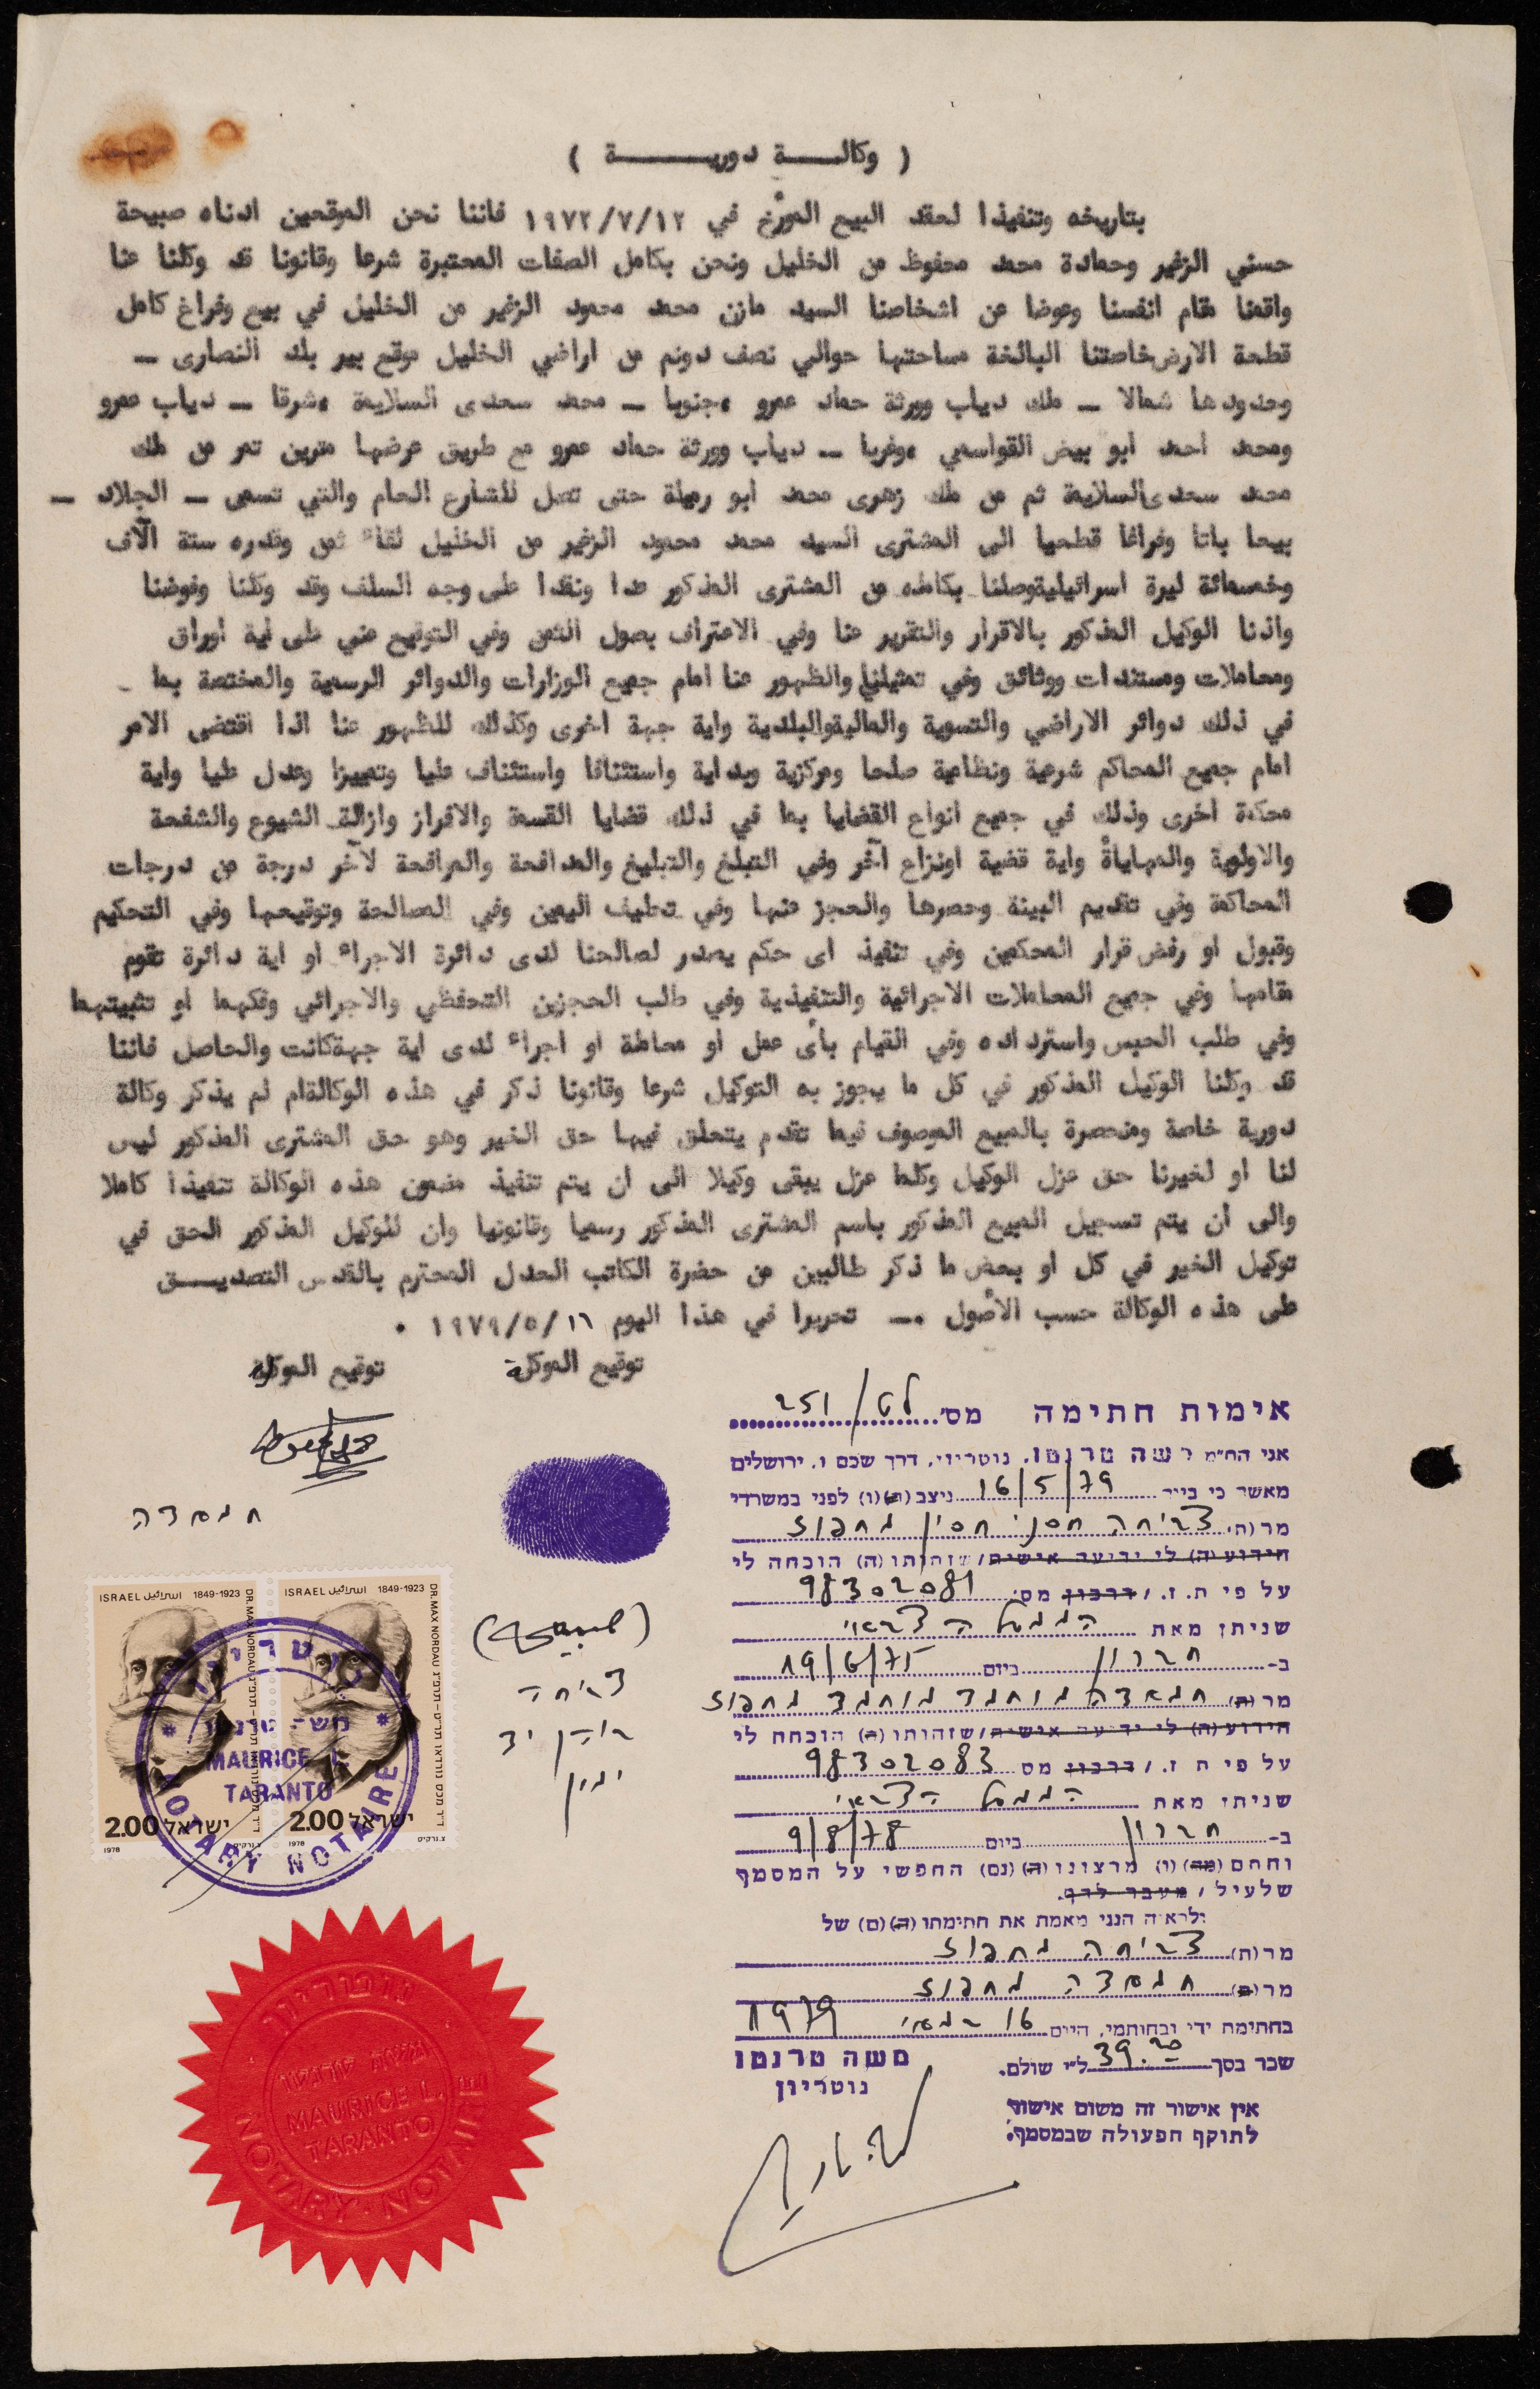 ( وكالــــة دوريـــــــة )
بتاريخه وتنفيذا لعقد البيع المؤرخ في ١٩٧٢/٧/١٢ فاننا نحن الموقعين ادناه صبيحة
حسني الزغير وحمادة محمد محفوظ من الخليل ونحن بكامل الصفات المعتبرة شرعا وقانونا قد وكلنا عنا
واقمنا مقام انفسنا وعوضا عن اشخاصنا السيد مازن محمد محمود الزغير من الخليل في بيع وفراغ كامل
قطعة الارض خاصتنا البالغة مساحتها حوالي نصف دونم من اراضي الخليل موقع بير بلد النصارى ـ
وحدودها شمالا ـ ملك دياب وورثة حماد عمرو ،جنوبا ـ محمد سعدى السلايمة ،شرقا ـ دياب عمرو
ومحمد احمد ابو بيض القواسمي ،وغربا ـ دياب وورثة حماد عمرو مع طريق عرضها مترين تمر من ملك
محمد سعدى السلايمة ثم من ملك زهرى محمد ابو رميلة حتى تصل للشارع العام والتي تسمى ـ الجلاد ـ
بيعا باتا وفراغا قطعيا الى المشترى السيد محمد محمود الزغير من الخليل لقاء ثمن وقدره ستة آلاف
وخمسمائة ليرة اسرائيليةوصلنا بكامله من المشترى المذكور عدا ونقدا على وجه السلف وقد وكلنا وفوضنا
واذنا الوكيل المذكور بالاقرار والتقرير عنا وفي الاعتراف بصول الثمن وفي التوقيع عني على اية اوراق
ومعاملات ومستندات ووثائق وفي تمثيلنا والظهور عنا امام جميع الوزارات والدوائر الرسمية والمختصة بما ـ
في ذلك دوائر الاراضي والتسوية والماليةوالبلدية واية جهة اخرى وكذلك للظهور عنا اذا اقتضى الامر
امام جميع المحاكم شرعية ونظامية صلحا ومركزية وبداية واستئنافا واستئناف عليا وتمييزا وعدل عليا واية
محكمة اخرى وذلك في جميع انواع القضايا بما في ذلك قضايا القسمة والافراز وازالة الشيوع والشفعة
والاولوية والمهاياة واية قضية اونزاع آخر وفي التبلغ والتبليغ والمدافعة والمرافعة لآخر درجة من درجات
المحاكمة وفي تقديم البينة وحصرها والعجز عنها وفي تحليف اليمين وفي المصالحة وتوقيعها وفي التحكيم
وقبول او رفض قرار المحكمين وفي تنفيذ اى حكم يصدر لصالحنا لدى دائرة الاجراء او اية دائرة تقوم
مقامها وفي جميع المعاملات الاجرائية والتنفيذية وفي طلب الحجزين التحفظي والاجرائي وفكهما او تثبيتهما
وفي طلب الحبس واسترداده وفي القيام بأى عمل او معاملة او اجراء لدى اية جهةكانت والحاصل فاننا
قد وكلنا الوكيل المذكور في كل ما يجوز به التوكيل شرعا وقانونا ذكر في هذه الوكالةام لم يذكر وكالة
دورية خاصة ومنحصرة بالمبيع الموصوف فيما تقدم يتعلق فيها حق الغير وهو حق المشترى المذكور ليس
لنا او لغيرنا حق عزل الوكيل وكلما عزل يبقى وكيلا الى ان يتم تنفيذ مضمون هذه الوكالة تنفيذا كاملا
والى ان يتم تسجيل المبيع المذكور باسم المشترى المذكور رسميا وقانونيا وان للوكيل المذكور الحق في
توكيل الغير في كل او بعض ما ذكر طالبين من حضرة الكاتب العدل المحترم بالقدس التصديـــق
على هذه الوكالة حسب الأصول .ـ تحريرا في هذا اليوم ١٩٧٩/٥/١٦ .
توقيع الموكلة توقيع الموكل
אימות חתימה מס' לט/251
אני הח"מ משה טרנטו, נוטריון, דרך שכם 1, ירושלים
מאשר כי ביום 16/5/79 ניצב (ה)(ו) לפני במשרדי
מר(ת) צביחה חסני חסין מחפוז
הידוע(ה) לי ידיעה אישית/שזהותו(ה) הוכחה לי
על פי ת. ז. / דרכון מס' 98302081
שניתן מאת הממשל הצבאי
ב- חברון ביום 19/6/75
מר(ת) חמאדה מוחמד מוחמד מחפוז
הידוע(ה) לי ידיעה אישית/שזהותו(ה) הוכחה לי
על פי ת ז. / דרכון מס 98302083
שניתן מאת הממשל הצבאי
ב- חברון ביום 9/8/78
וחתם (מה)(ו) מרצונו(ה)(נם) החפשי על המסמך
שלעיל / מעבר לדף.
ולראיה הנני מאמת את חתימתו(ה)(ם) של
מר(ת) צביחה מחפוז
מר(ת) חמאדה מחפוז
בחתימת ידי ובחותמי, היום 16 במאי 1979
שכר בסך 39.20 ל"י שולם.
משה טרנטו
נוטריון
אין אישור זה משום אישור
לתוקף הפעולה שבמסמך.
חמאדה
צביחה
בוהן יד
ימין
ISRAEL اسرائيل 1849-1923
DR. MAX NORDAU
ישראל 2.00
1978
ISRAEL اسرائيل 1849-1923
DR. MAX NORDAU
ישראל 2.00
1978
נוטריון
משה טרנטו
MAURICE L.
TARANTO
NOTARY NOTAIRE
נוטריון
משה טרנטו
MAURICE L.
TARANTO
NOTARY · NOTAIRE